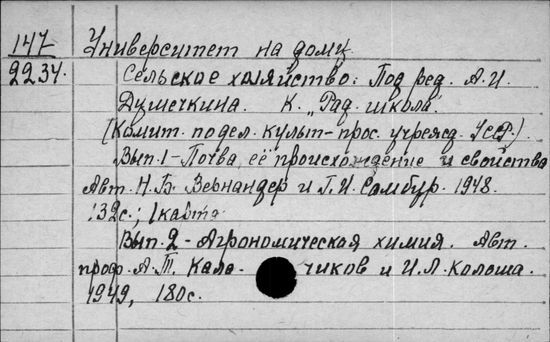 147 Университет на дому
2234. Сельское хозяйство: Под ред. А.И.
Душечкина. К. „Рад. школа".
(Комит. по дел. культ-прос. учрежд. УССР.)
Вып. 1 - Почва, её происхождение и свойства
Авт. Н.Б. Вернандер и Г.И. Самбур. 1948.
132с.; 1 карта
Вып. 2 - Агрономическая химия. Авт.
проф. А.Т. Кала- чиков и И.Л. Колоша.
1949, 180с.